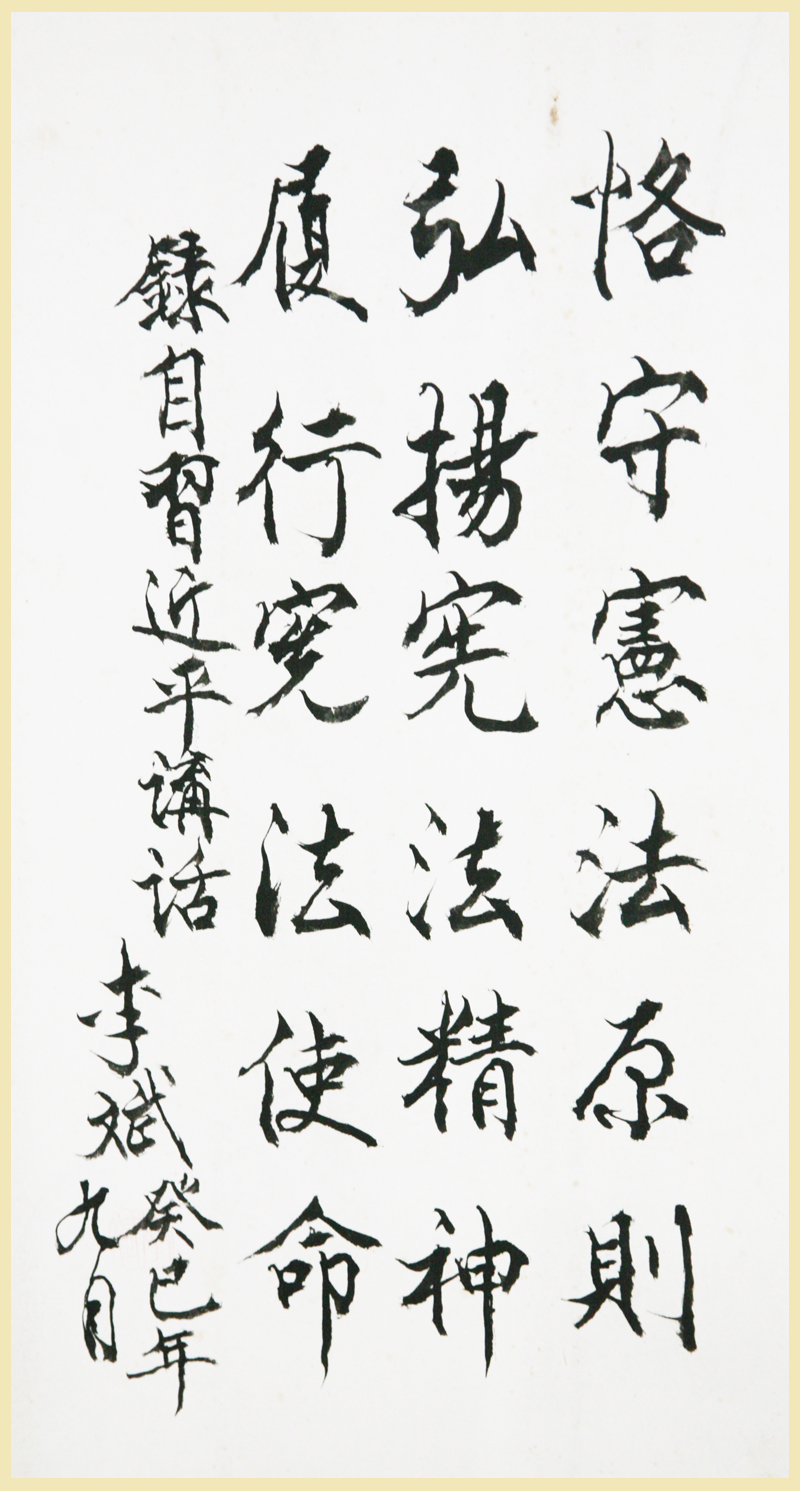 恪守憲法原則
弘揚宪法精神
履行宪法使命
録自習近平講話
李斌
癸巳年
九月